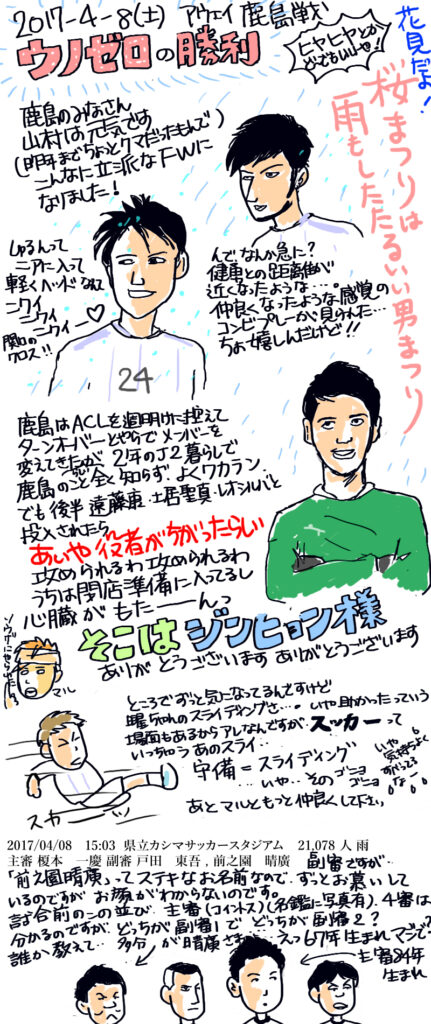 2017-4-8(土) アウェイ 鹿島戦
ウノゼロの勝利
ヒヤヒヤとか
どーでもいいせ!
花見だよ!
桜まつりは
雨もしたたるいい男まつり
鹿島のみなさん
山村は元気です
(昨年までちょっとクマだったもんで)
こんなに立派なFWに
なりました!
しゅるんって
ニアに入って
軽くヘッド なんて
ニクイ
ニクイ
ニクイー♡
関口の
クロス!!
24
んで なんか急に?
健勇との距離感が
近くなったような…
仲良くなったような 感覚の
コンビプレーが見られた…
ちょと嬉しんだけど!!
鹿島はACLを週明けに控えて
ターンオーバーとやらでメンバーを
変えてきたが 2年のJ2暮らしで
鹿島のこと全く知らず よくワカラン
でも後半 遠藤康 土居聖真 レオシルバと
投入されたら
あいや 役者がちがったらしい
攻められるわ攻められるわ
うちは閉店準備に入ってるし
心臓が もたーーんっ
そこは ジンヒョン様
ありがとうございます ありがとうございます
マル
ところで ずっと気になってるんですけど
曜ちゃんのスライディングさ… いや助かったっていう
場面もあるからアレなんですが スッカーって
いっちゅう あのスライ…
守備=スライディング
…いや…その ゴニョ
ゴニョ
いや
気持ちよく
すべってる
なー
あとマルともっと仲良くして下さい。
スカーッ
2017/04/08 15:03 県立カシマサッカースタジアム 21,078 人 雨
主審 榎本 一慶 副審 戸田 東吾 , 前之園 晴廣
副審ですが…
「前之園晴廣」ってステキなお名前なので ずっとお慕いして
いるのですが お顔がわからないのです。
試合前のこの並び、主審(コイントス)(名鑑に写真有)、4審は
分かるのですが、どっちが副審1で どっちが副審2?
誰か教えて… 多分 が晴廣さま… えっ67年生まれマジで?
主審84年
生まれ